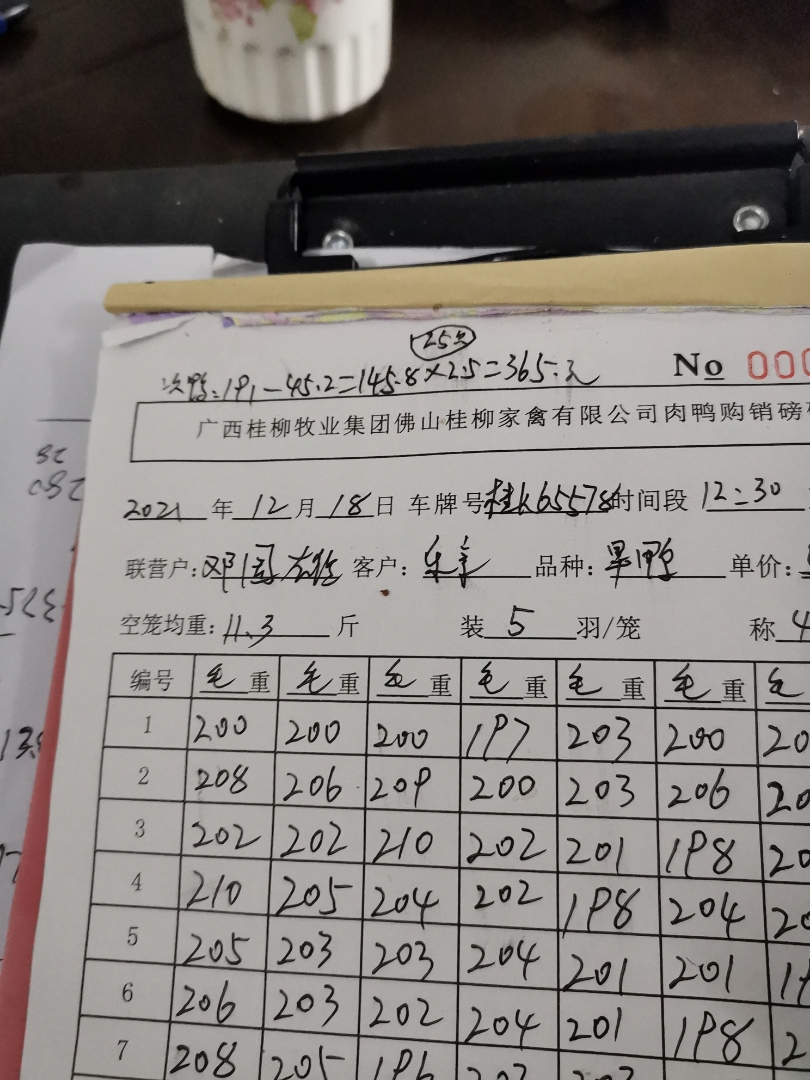 25只
次鸭:191-45.2=145.8×2.5=365元
No 000
广西桂柳牧业集团佛山桂柳家禽有限公司肉鸭购销磅
2021年12月18日 车牌号 65578 时间段 12:30
联营户:邓国 客户: 品种: 鸭 单价:
空笼均重:11.3斤 装5羽/笼 称4
编号 毛重 毛重 毛重 毛重 毛重 毛重 毛
1 200 200 200 197 203 200 20
2 208 206 209 200 203 206 20
3 202 202 210 202 201 198 20
4 210 205 204 202 198 204 20
5 205 203 203 204 201 201 19
6 206 203 202 204 201 198 2
7 208 205 196